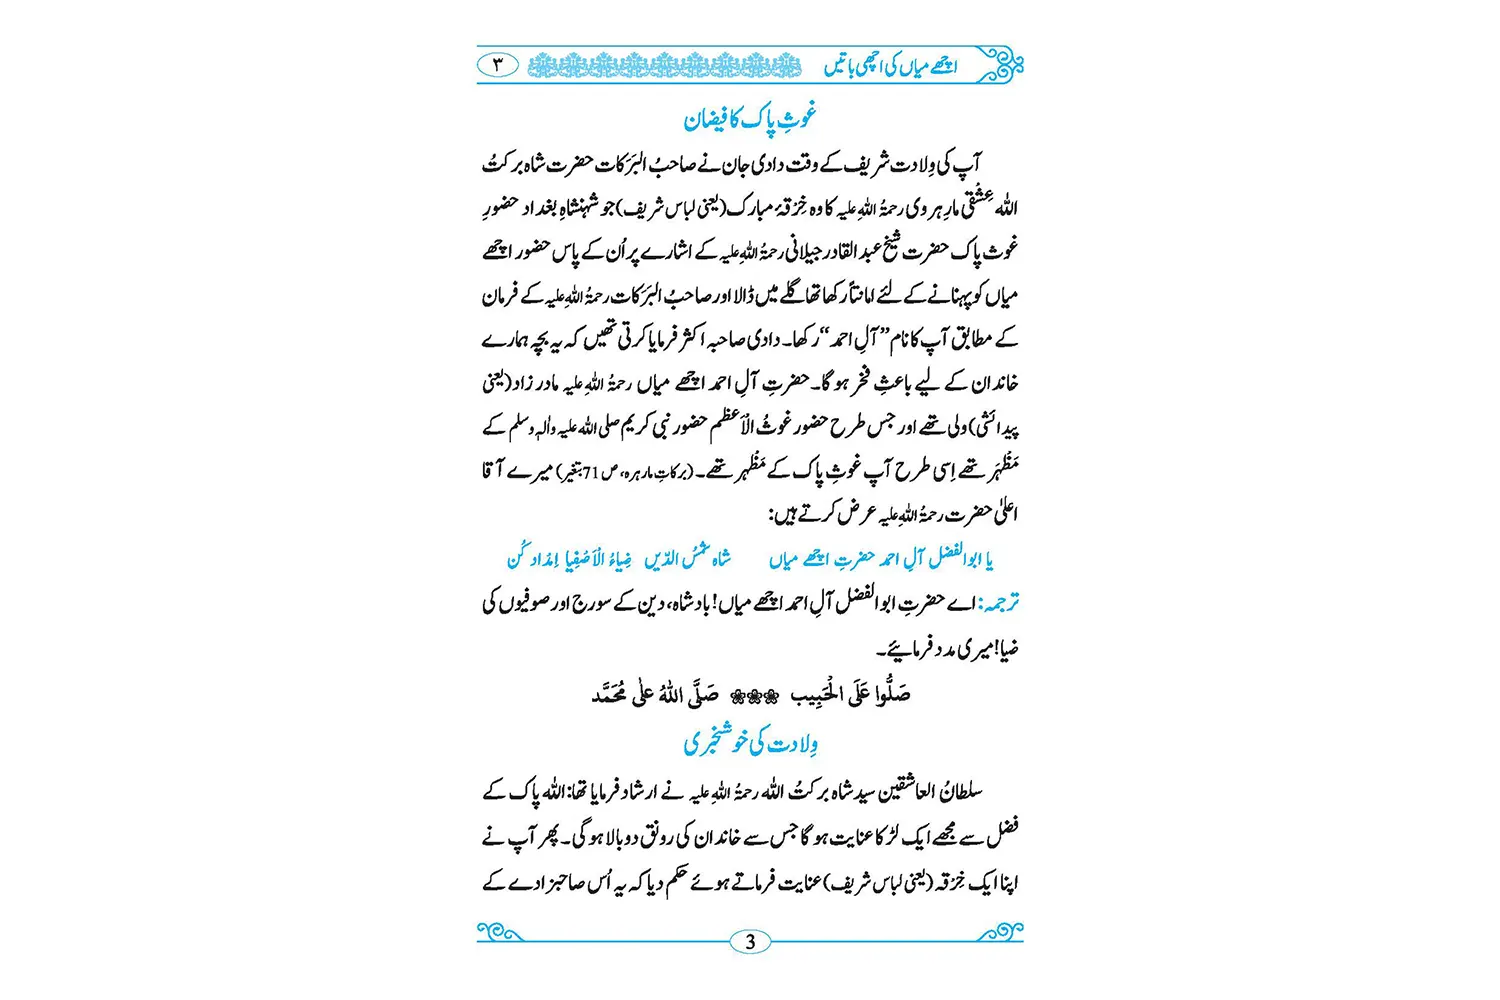 اچھے میاں کی اچھی باتیں ۳
غوثِ پاک کا فیضان
آپ کی وِلادت شریف کے وقت دادی جان نے صاحبُ البَرَکات حضرت شاہ برکتُ
اللہ عِشْقی مارِہروی رحمۃُ اللہِ علیہ کا وہ خِرْقۂ مبارک(یعنی لباس شریف)جو شہنشاہِ بغداد حضورِ
غوث پاک حضرت شیخ عبد القادر جیلانی رحمۃُ اللہِ علیہ کے اشارے پر اُن کے پاس حضور اچھے
میاں کو پہنانے کے لئے امانتاً رکھا تھا گلے میں ڈالا اور صاحبُ البَرَکات رحمۃُ اللہِ علیہ کے فرمان
کے مطابق آپ کا نام ”آلِ احمد“ رکھا۔ دادی صاحبہ اکثر فرمایا کرتی تھیں کہ یہ بچہ ہمارے
خاندان کے لیے باعثِ فخر ہو گا۔ حضرتِ آلِ احمد اچھے میاں رحمۃُ اللہِ علیہ مادر زاد(یعنی
پیدائشی)ولی تھے اور جس طرح حضور غوثُ الْاَعظم حضور نبی کریم صلی اللہ علیہ واٰلہٖ وسلم کے
مَظْہَر تھے اِسی طرح آپ غوثِ پاک کے مَظْہر تھے۔ (برکاتِ مارہرہ، ص 71 بتغیر) میرے آقا
اعلیٰ حضرت رحمۃُ اللہِ علیہ عرض کرتے ہیں:
یا ابوالفضل آلِ احمد حضرتِ اچھے میاں شاہ شمسُ الدّیں ضِیاءُ الْاَصْفِیا اِمْداد کُن
ترجمہ: اے حضرتِ ابو الفضل آلِ احمد اچھے میاں! بادشاہ، دین کے سورج اور صوفیوں کی
ضیا! میری مدد فرمائیے۔
صَلُّوا عَلَی الْحَبِیب صَلَّی اللہُ علٰی مُحَمَّد
وِلادت کی خوشخبری
سلطانُ العاشقین سید شاہ برکتُ اللہ رحمۃُ اللہِ علیہ نے ارشاد فرمایا تھا: اللہ پاک کے
فضل سے مجھے ایک لڑکا عنایت ہو گا جس سے خاندان کی رونق دوبالا ہو گی۔ پھر آپ نے
اپنا ایک خِرْقہ (یعنی لباس شریف)عنایت فرماتے ہوئے حکم دیا کہ یہ اُس صاحبزادے کے
3